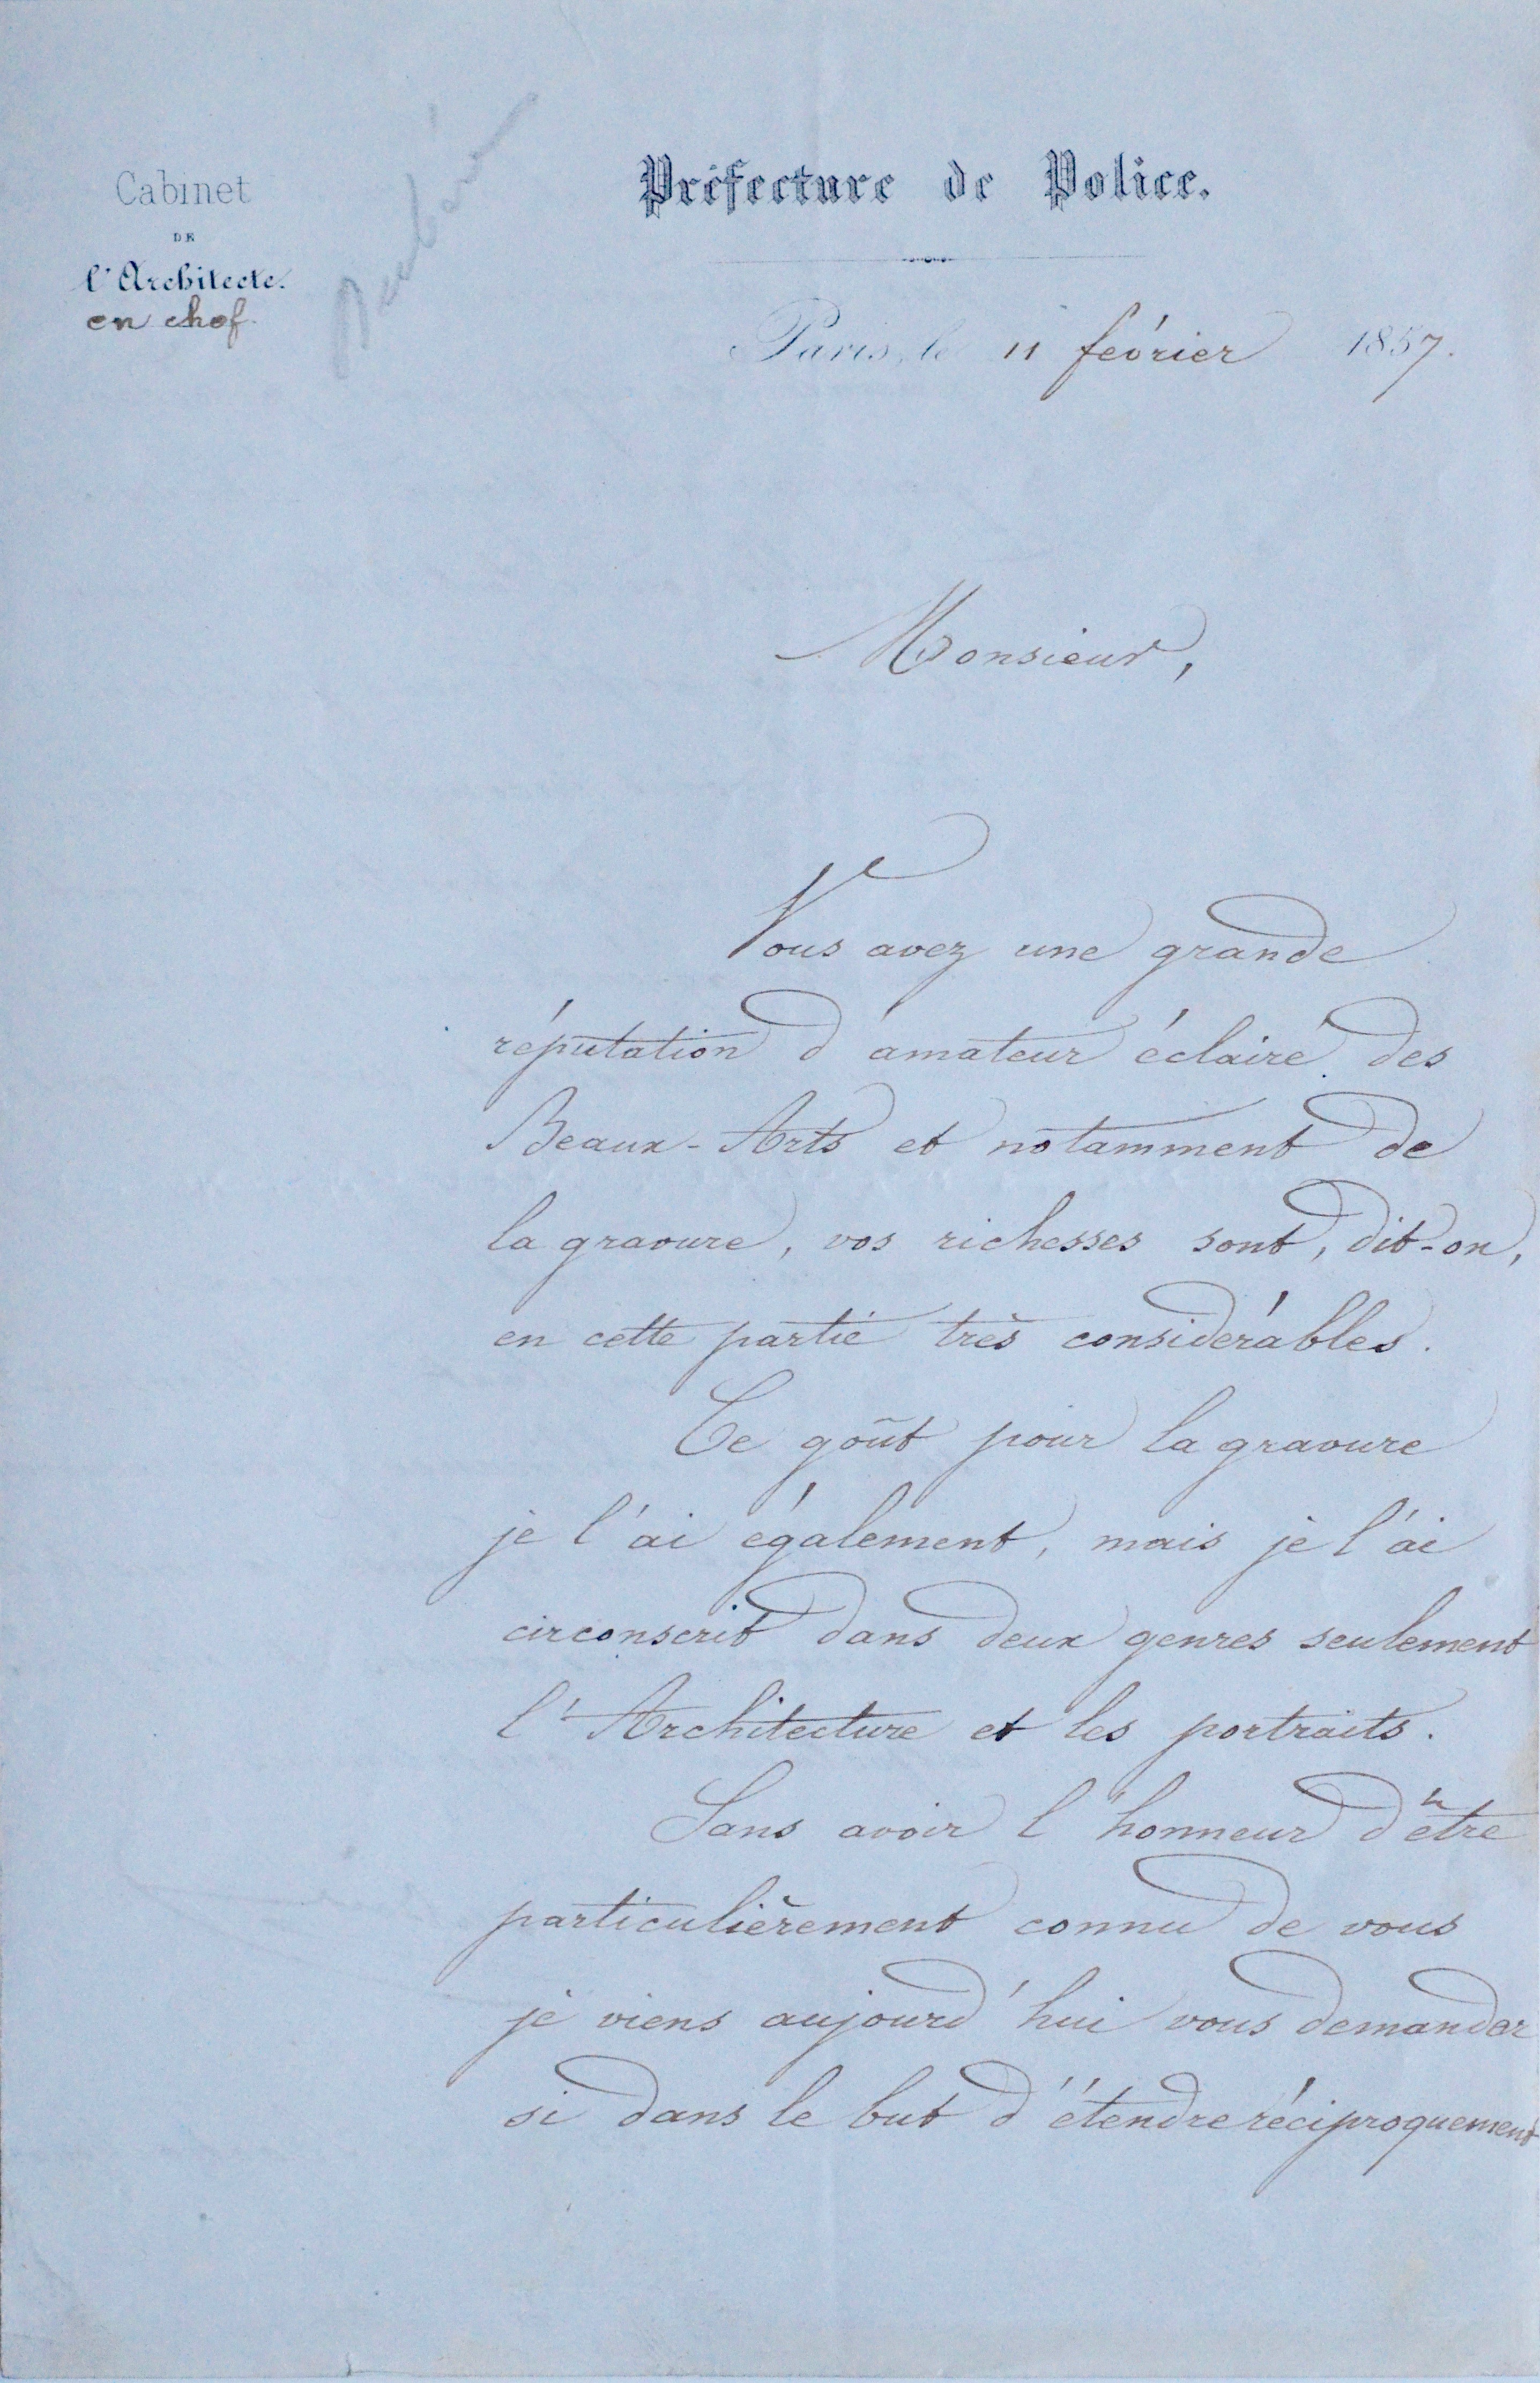 Cabinet
DE
l'Architecte.
en chef.
Préfecture de Police.
Paris, le 11 février 1857.
Monsieur,
Vous avez une grande
réputation d'amateur éclairé des
Beaux-Arts et notamment de
la gravure, vos richesses sont, dit-on,
en cette partie très considérables.
Ce goût pour la gravure
je l'ai également, mais je l'ai
circonscrit dans deux genres seulement
l'Architecture et les portraits.
Sans avoir l'honneur d'être
particulièrement connu de vous
je viens aujourd'hui vous demander
si dans le but d'étendre réciproquement